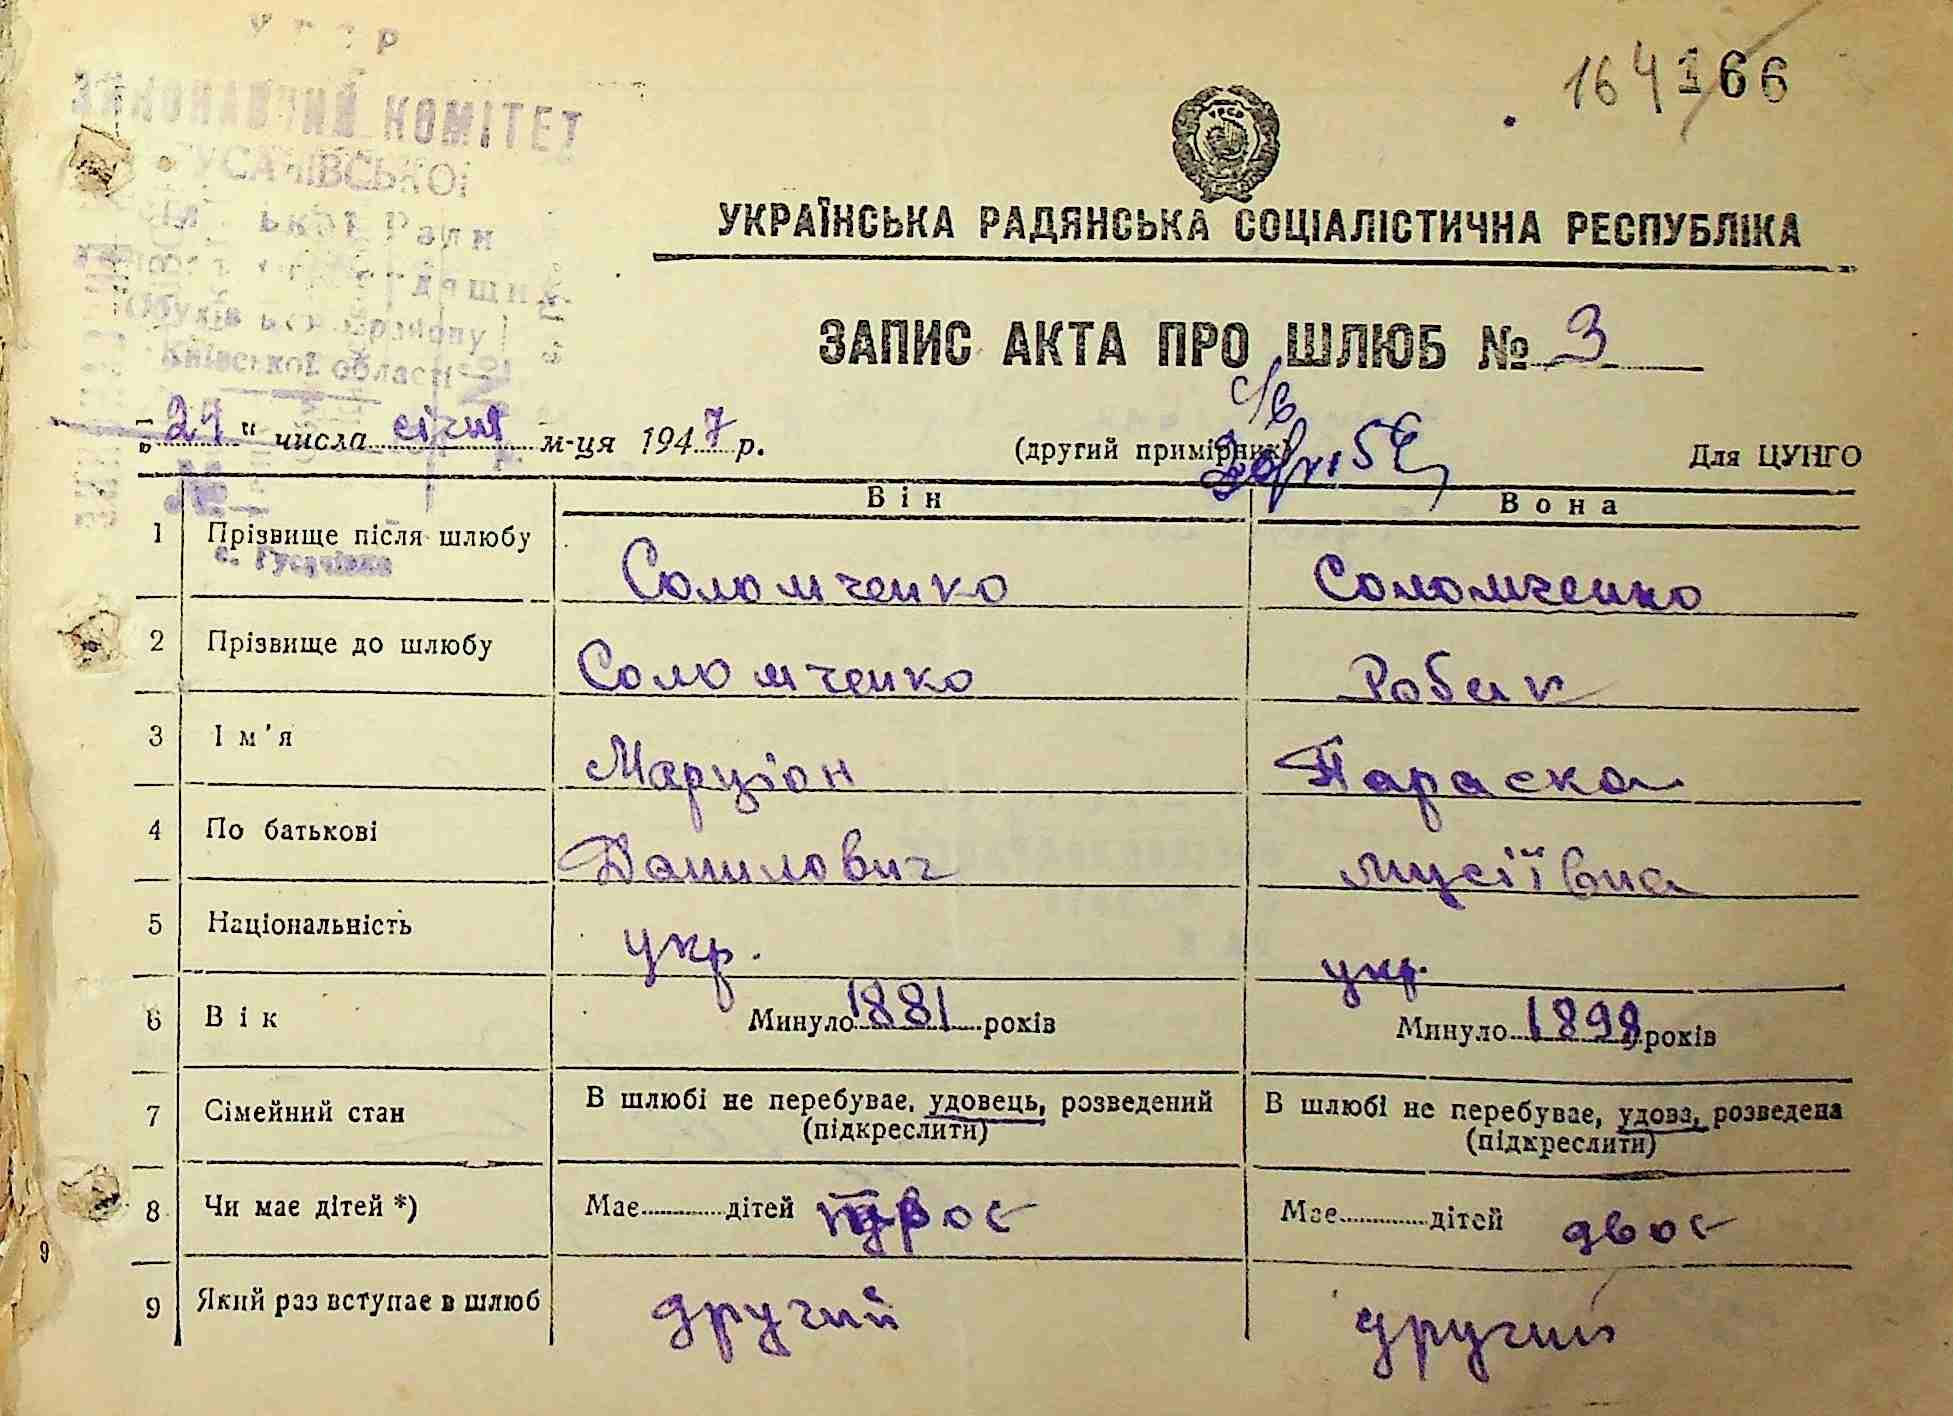 УРСР
ВИКОНАВЧИЙ КОМІТЕТ
ГУСАЧІВСЬКОЇ
сільської Ради
депутатів трудящих
Обухівського району
Київської області
164 166
УКРАЇНСЬКА РАДЯНСЬКА СОЦІАЛІСТИЧНА РЕСПУБЛІКА
ЗАПИС АКТА ПРО ШЛЮБ № 3
„ 24 “ числа січня м-ця 1947 р. (другий примірник) Для ЦУНГО
Він Вона
1 Прізвище після шлюбу Соломченко Соломченко
с. Гусачівка
2 Прізвище до шлюбу Соломченко Робак
3 Ім'я Марціон Параска
4 По батькові Данилович Мусіївна
5 Національність укр. укр.
6 Вік Минуло 1881 років Минуло 1898 років
7 Сімейний стан В шлюбі не перебуває, удовець, розведений В шлюбі не перебуває, удова, розведена
(підкреслити) (підкреслити)
8 Чи має дітей *) Має дітей троє Має дітей двоє
9 Який раз вступає в шлюб другий другий
9